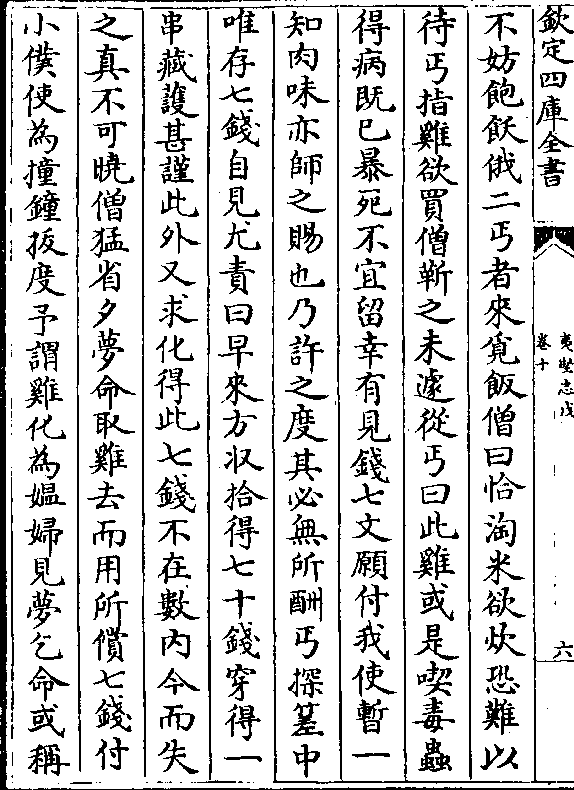 欽定四庫全書
夷堅志戊
卷十
六
不妨飽飫俄二丐者來覓飯僧曰恰淘米欲炊恐難以
待丐指雞欲買僧靳之未遽從丐曰此雞或是喫毒蟲
得病既已暴死不宜留幸有見錢七文願付我使暫一
知肉味亦師之賜也乃許之度其必無所酬丐探篋中
唯存七錢自見尤責曰早來方收拾得七十錢穿得一
串藏護甚謹此外又求化得此七錢不在數內今而失
之真不可曉僧猛省夕夢命取雞去而用所償七錢付
小僕使為撞鐘拔度予謂雞化為媼婦見夢乞命或稱